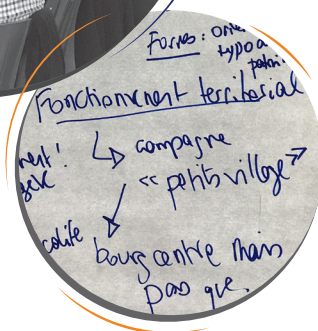 Formes : orie
typo a
patri
Fonctionnement territorial
ment !
campagne
« petits village »
bourg centre mais
pas que